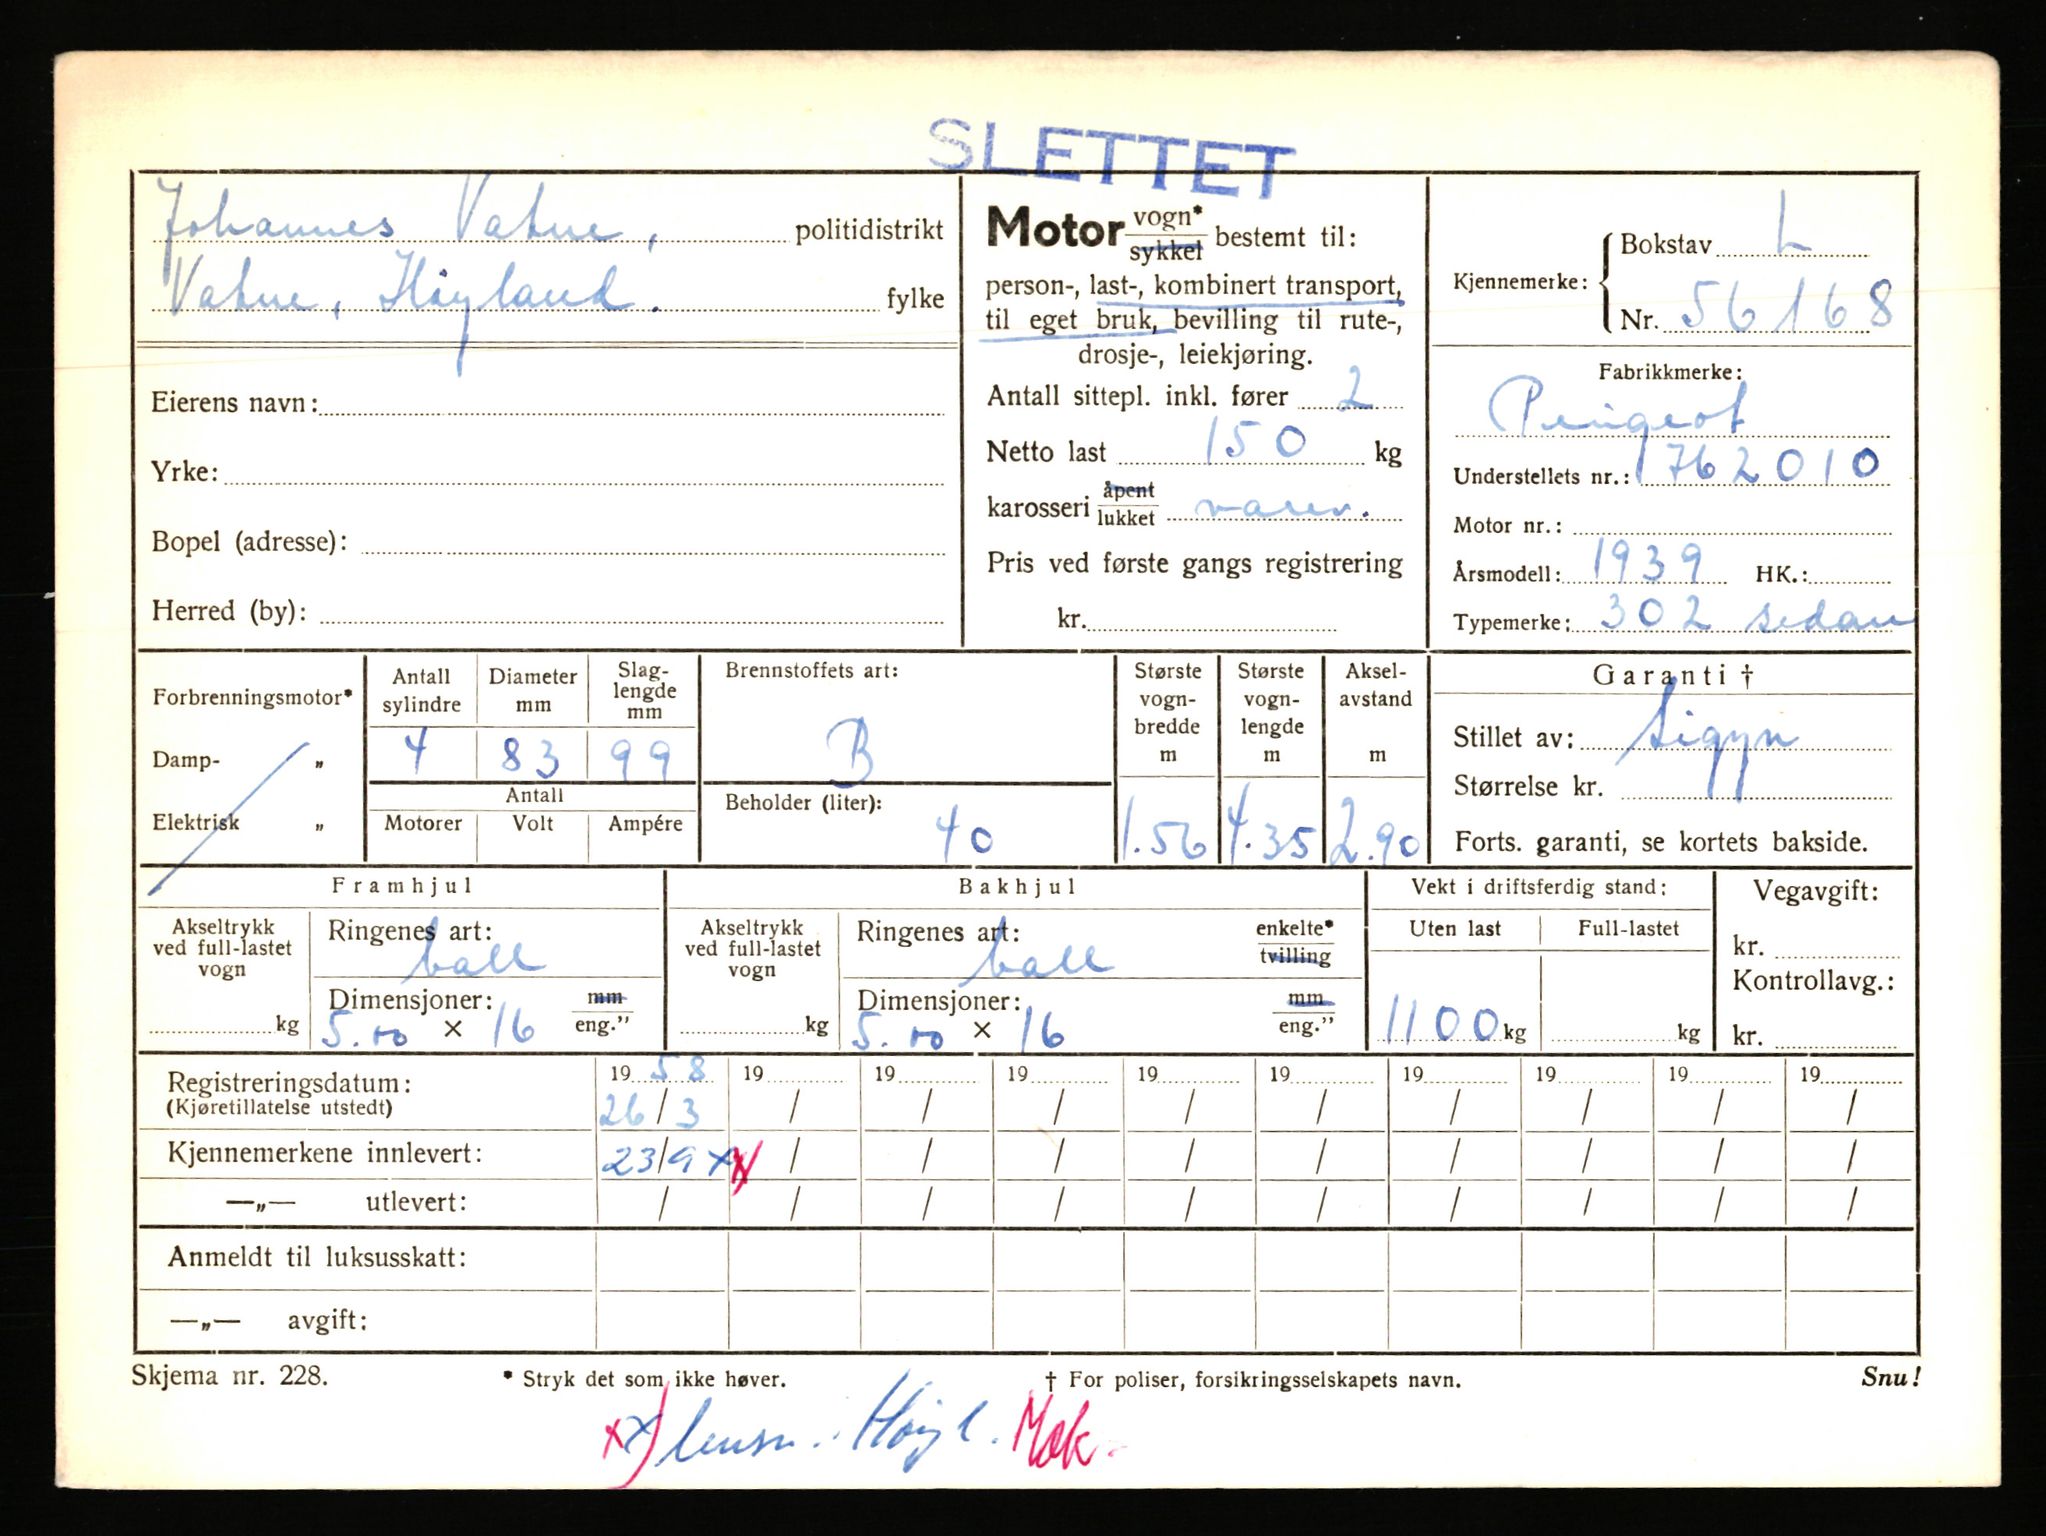 SLETTET
Johannes Vatne, politidistrikt
Vatne, Høyland. fylke
Eierens navn:
Yrke:
Bopel (adresse):
Herred (by):
Motor vogn* sykkel bestemt til:
person-, last-, kombinert transport,
til eget bruk, bevilling til rute-,
drosje-, leiekjøring.
Antall sittepl. inkl. fører 2
Netto last 150 kg
karosseri åpent lukket varev.
Pris ved første gangs registrering
kr.
Kjennemerke: Bokstav L
Nr. 56168
Fabrikkmerke:
Peugeot
Understellets nr.: 1762010
Motor nr.:
Årsmodell: 1939 HK.:
Typemerke: 302 sedan
Forbrenningsmotor*
Damp- „
Elektrisk „
Antall sylindre
4
Diameter mm
83
Slag-lengde mm
99
Antall
Motorer Volt Ampére
Brennstoffets art:
B
Beholder (liter):
40
Største vogn-bredde m
1.56
Største vogn-lengde m
4.35
Aksel-avstand m
2.90
Garanti †
Stillet av: Sigyn
Størrelse kr.
Forts. garanti, se kortets bakside.
Framhjul
Akseltrykk ved full-lastet vogn
kg
Ringenes art:
ball
Dimensjoner: mm eng.”
5.00 × 16
Bakhjul
Akseltrykk ved full-lastet vogn
kg
Ringenes art: enkelte* tvilling
ball
Dimensjoner: mm eng.”
5.00 × 16
Vekt i driftsferdig stand:
Uten last Full-lastet
1100 kg kg
Vegavgift:
kr.
Kontrollavg.:
kr.
Registreringsdatum: 19 58 19 19 19 19 19 19 19 19 19
(Kjøretillatelse utstedt) 26/3 / / / / / / / / /
Kjennemerkene innlevert: 23/9 xx / / / / / / / / /
—„— utlevert: / / / / / / / / / /
Anmeldt til luksusskatt:
—„— avgift:
Skjema nr. 228. * Stryk det som ikke høver. † For poliser, forsikringsselskapets navn. Snu!
xx) lensm. i Høyl.